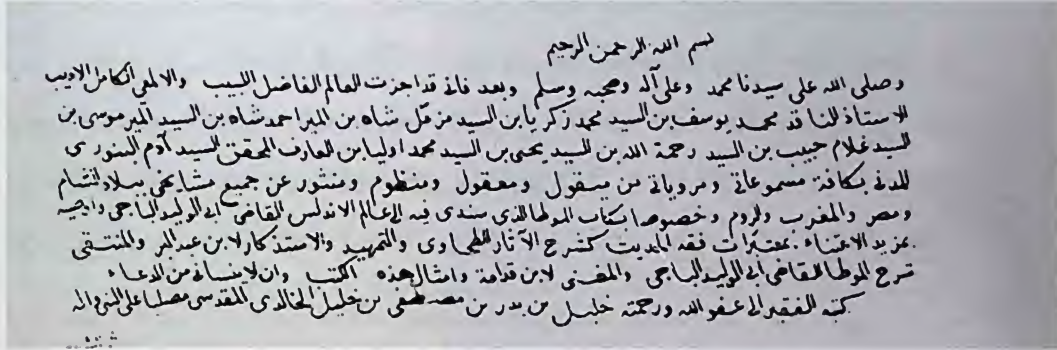 بسم الله الرحمن الرحيم
وصلى الله على سيدنا محمد وعلى آله وصحبه وسلم وبعد فانى قد اجزت العالم الفاضل اللبيب والالمعى الكامل الاديب
الاستاذ الناقد محمد يوسف بن السيد محمد زكريا بن السيد مزمل شاه بن المير احمد شاه بن السيد المير موسى بن
السيد غلام حبيب بن السيد رحمة الله بن السيد يحيى بن السيد محمد اوليا بن العارف المحقق السيد آدم البنورى
المدنى بكافة مسموعاتى ومروياتى من منقول ومعقول ومنظوم ومنثور عن جميع مشايخى ببلاد الشام
ومصر والمغرب والروم وخصوصا بكتاب الموطا الذى سندى فيه الى عالم الاندلس القاضى ابى الوليد الباجى واوصيه
بمزيد الاعتناء بمعتبرات فقه الحديث كشرح الآثار للطحاوى والتمهيد والاستذكار لابن عبد البر والمنتقى
شرح الموطا للقاضى ابى الوليد الباجى والمغنى لابن قدامة وامثال هذه الكتب وان لا ينسانى من الدعاء
كتبه الفقير الى عفو الله ورحمته خليل بن بدر بن مصطفى بن خليل الخالدى المقدسى مصليا على النبى واله